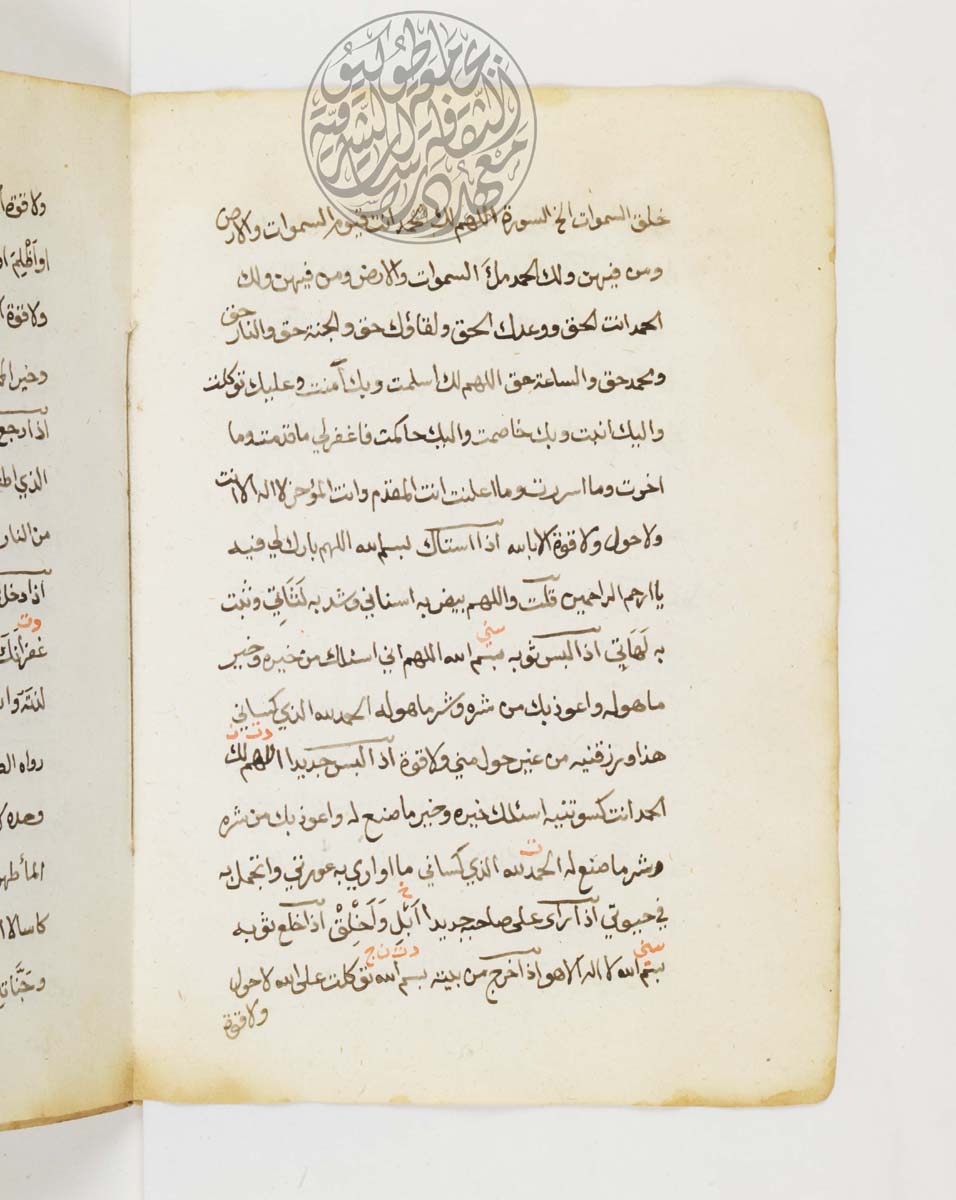 خلق السموات الخ السورة اللهم لك الحمد انت قيوم السموات والارض
ومن فيهن ولك الحمد ملك السموات والارض ومن فيهن ولك
الحمد انت الحق ووعدك الحق ولقاؤك حق والجنة حق والنار حق
ومحمد حق والساعة حق اللهم لك اسلمت وبك آمنت وعليك توكلت
واليك انبت وبك خاصمت واليك حاكمت فاغفرلي ما قدمت وما
اخرت وما اسررت وما اعلنت انت المقدم وانت المؤخر لا اله الا انت
ولا حول ولا قوة الا بالله اذا استاك بسم الله اللهم بارك لي فيه
يا ارحم الراحمين قلت واللهم بيض به اسناني وشد به لَثَاتِي وثبت
سني
به لَهَاتِي اذا لبس ثوبه بسم الله اللهم اني اسئلك من خيره وخير
ما هو له واعوذ بك من شره وشر ما هو له الحمد لله الذي كساني
د ت
هذا ورزقنيه من غير حول مني ولا قوة اذا لبس جديدا اللهم لك
الحمد انت كسوتنيه اسئلك خيره وخير ما صنع له واعوذ بك من شره
ت
وشر ما صنع له الحمد لله الذي كساني ما اواري به عورتي واتجمل به
خ
في حيوتي اذا رآى على صاحبه جديدا اَبْلِ وَاَخْلِقْ اذا خلع ثوبه
سني د ت ن ج
بسم الله لا اله الا هو اذا خرج من بيته بسم الله توكلت على الله لا حول
ولا قوة
ولا قوة
او اَظْلِمَ
ولا قوة
وخير
اذا رجع
الذي
من النار
اذا دخل
د ت
غفرانك
رواه
وحده
جامعة طوكيو
معهد دراسات الثقافة الشرقية